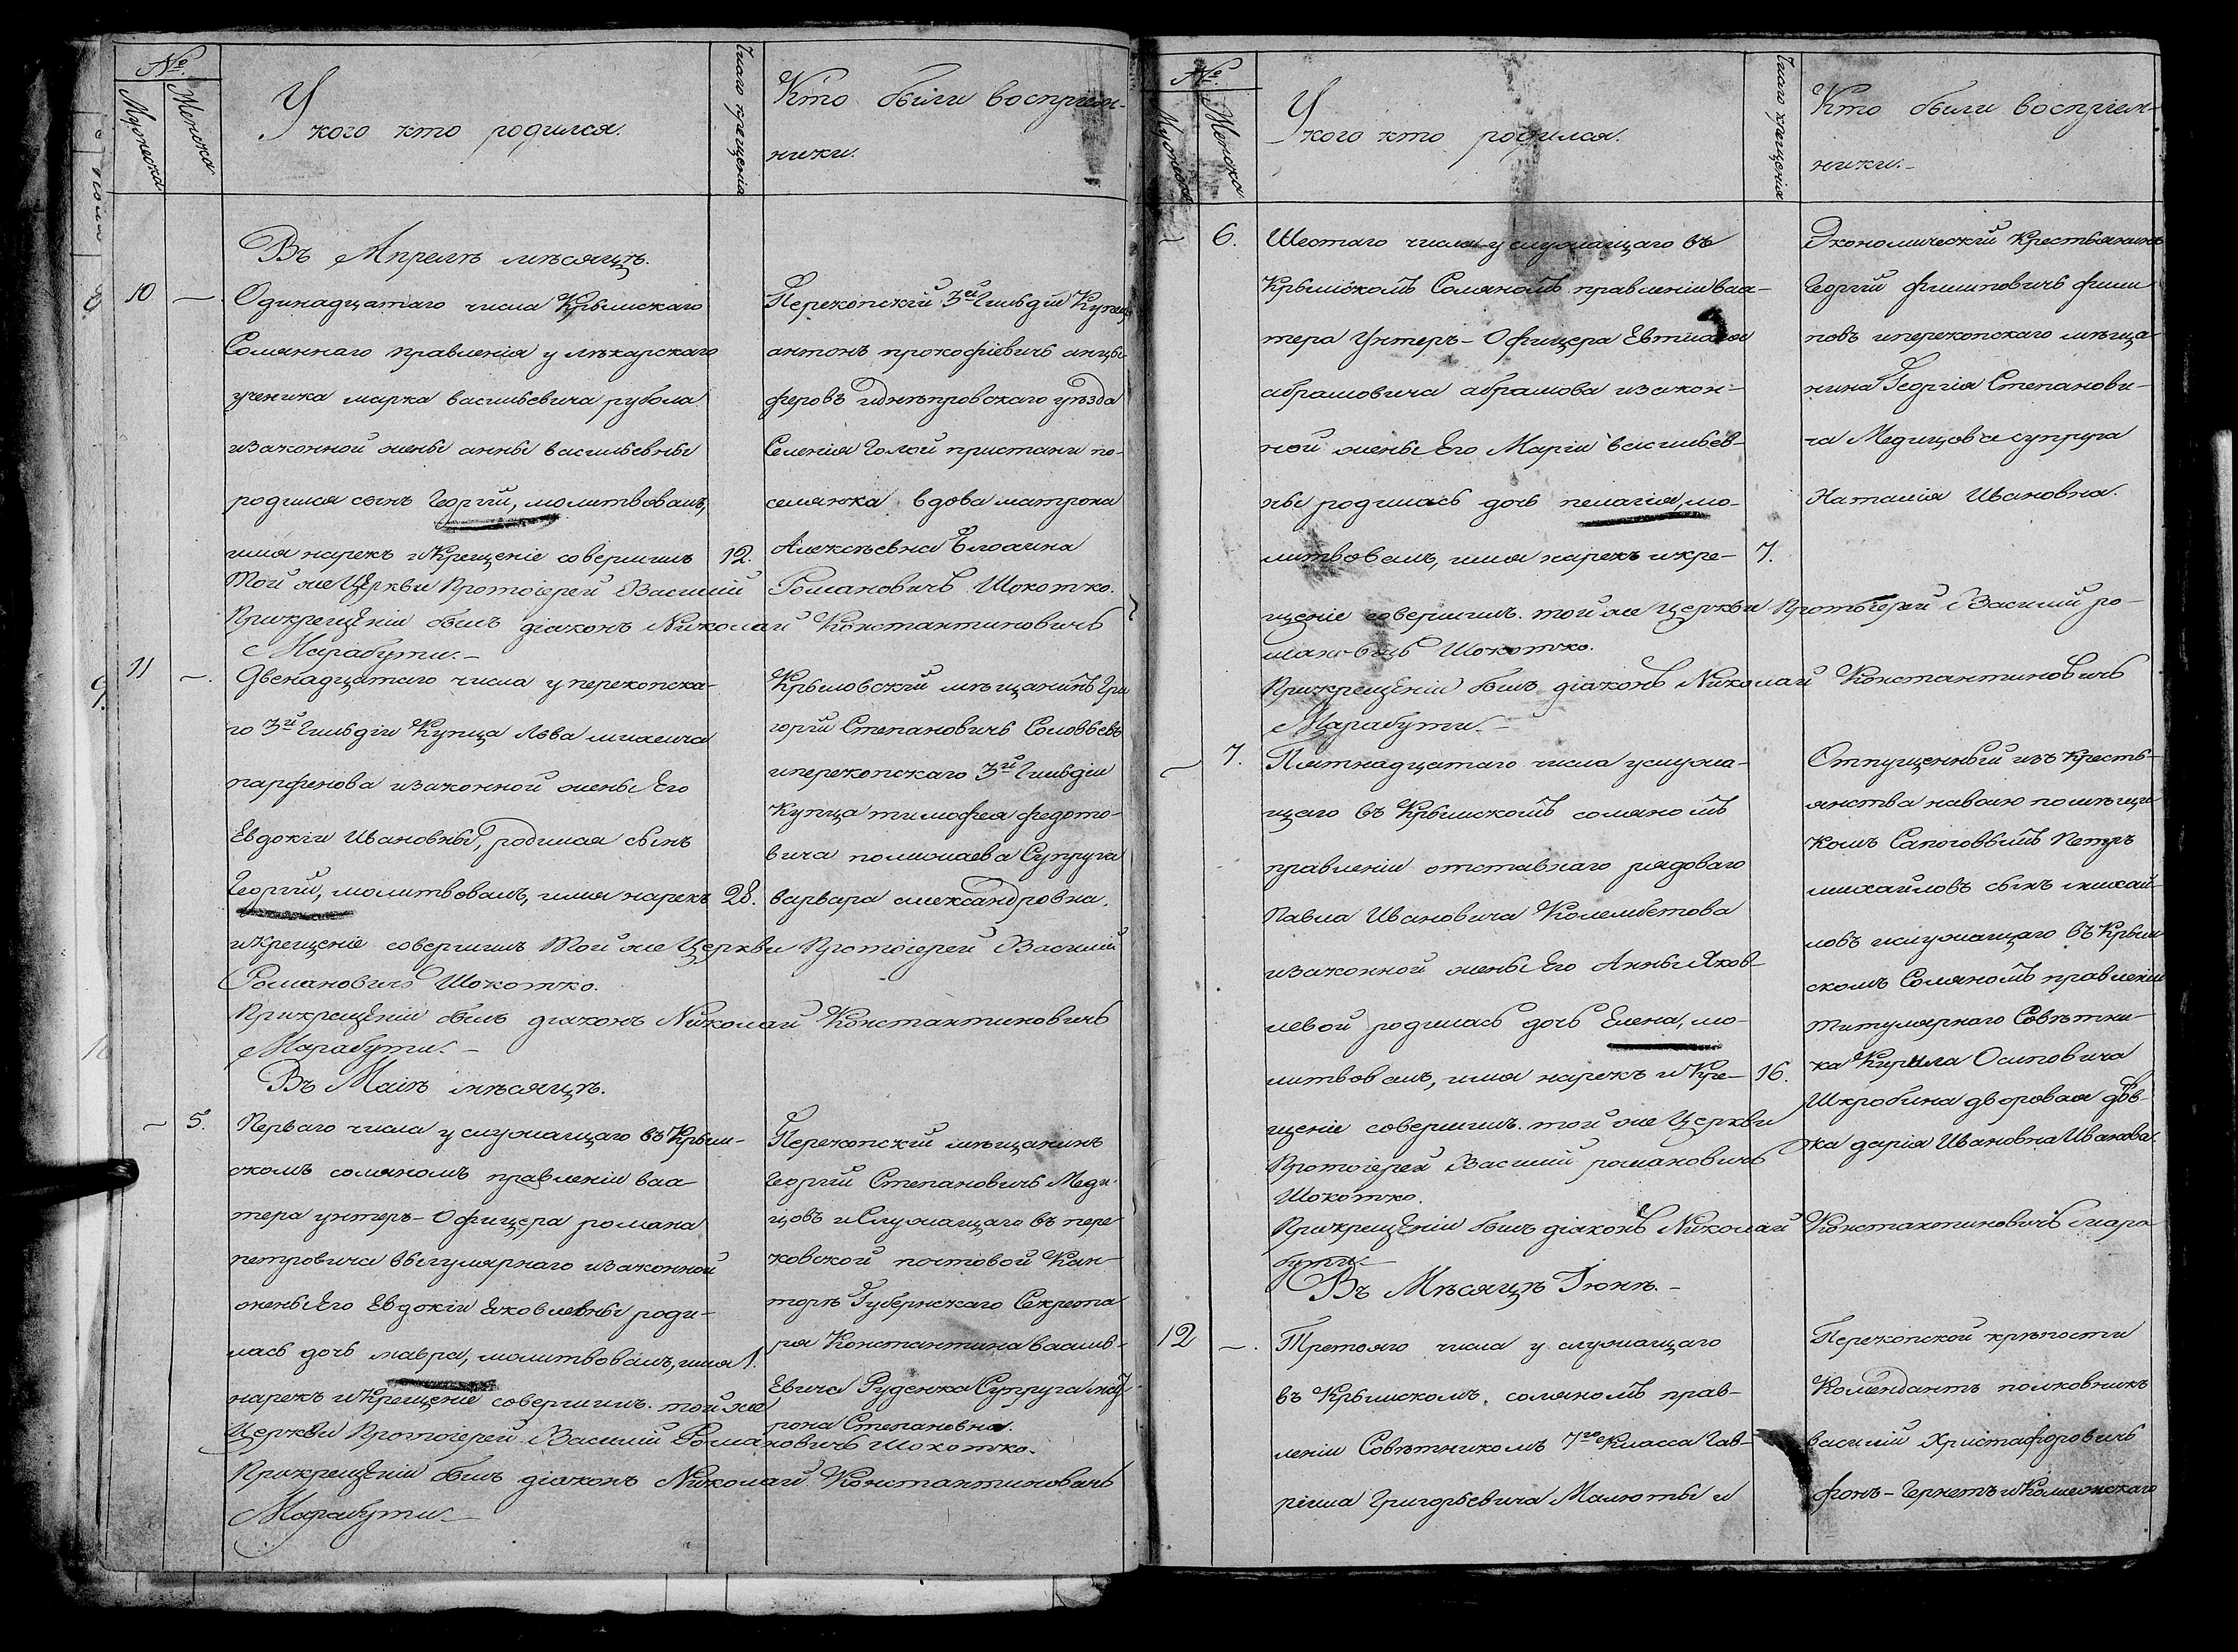 №
Мужеска
Женска
У кого кто родился.
Число крещенія
Кто были воспріем-
ники.
Въ Апрелѣ мѣсяцѣ.
10
Одинадцатаго числа Крымскаго
Солянаго правленія у лѣкарскаго
ученика марка васильевича рубола
иззаконной жены анны васильевны
родился сынъ Георгій, молитвовалъ,
имя нарекъ и Крещеніе совершилъ
12.
Той же Церкви Протоіерей Василий Романовичъ Шокотко.
Прикрещеніи былъ діаконъ Николай Константиновичъ
Марабути.
Перекопскій 3й Гильдіи Купецъ
антонъ прокофіевичъ анцы-
феровъ иднѣпровскаго уѣзда
Селенія Голой пристани по-
селянка вдова матрона
Алексѣевна
11
Двенадцатаго числа у перекопска-
го 3й Гильдіи Купца Льва михеича
парфенова иззаконной жены Его
Евдокіи Ивановны, родился сынъ
Георгий, молитвовалъ, имя нарекъ
28.
и крещеніе совершилъ Той же Церкви Протоіерей Василий
Романовичъ Шокотко.
Прикрещеніи былъ діаконъ Николай Константиновичъ
Марабути.
Крыловскій мѣщанинъ Гри
горій Степановичъ Соловьевъ
иперекопскаго 3й Гильдіи
купца тимофея федото-
вича полижаева Супруга
варвара александровна.
Въ Маіѣ мѣсяцѣ.
5.
Перваго числа у служащаго въ Крым-
скомъ соляномъ правленіи ваа
тера унтеръ-Офицера романа
петровича выгулярнаго иззаконной
жены Его Евдокіи Яковлевны роди-
лась дочь мавра, молитвовалъ, имя
1.
нарекъ и Крещеніе совершилъ. той же
Церкви Протоіерей Василий Романовичъ Шокотко.
Прикрещеніи былъ діаконъ Николай Константиновичъ
Марабути.
Перекопскій мѣщанинъ
Георгій Степановичъ Меди-
цовъ и Служащаго въ пере-
ковской почтовой Кан-
торѣ Губернскаго Секрета
ря Константина василь-
Евича Руденка Супруга мат
рона Степановна.
№
Мужеска
Женска
У кого кто родился.
Число крещенія
Кто были воспріем-
ники.
6.
Шестаго числа у служащаго въ
Крымскомъ Соляномъ правленіи ваа-
тера Унтеръ-Офицера Евтиѳия
абрамовича абрамова иззакон-
ной жены Его Маріи васильев-
ны родилась дочь пелагія, мо-
литвовалъ, имя нарекъ икре-
7.
щеніе совершилъ. той же Церкви Протоіерей Василий ро-
мановичъ Шокотко.
Прикрещеніи былъ діаконъ Николай Константиновичъ
Марабути.
Экономическій Крестьянинъ
Георгій филиповичъ фили
повъ иперекопскаго мѣща-
нина Георгія Степанови-
ча Медицова супруга
Наталія Ивановна.
7.
Пятнадцатаго числа услужа-
щаго въ Крымскомъ соляномъ
правленіи отставнаго рядоваго
Павла Ивановича Колембетова
иззаконной жены Его Анны Яков-
левой родилась дочь Елена, мо-
литвовалъ, имя нарекъ и Кре-
16.
щеніе совершилъ. той же Церкви
Протоіерей Василий романовичъ
Шокотко.
Прикрещеніи былъ діаконъ Николай Константиновичъ мара
бути.
Отпущенный изъ Кресть-
янства наволю помѣщи-
комъ Сапоговымъ Петръ
михайловъ сынъ михай-
ловъ ислужащаго въ Крым-
скомъ Соляномъ правленіи
Титулярнаго Совѣтни-
ка Кирила Осиповича
Шкробина дворовая дѣв-
ка дарія Ивановна Иванова.
Въ Мѣсяцѣ Іюнѣ.
12
Третьяго числа у служащаго
въ Крымскомъ соляномъ прав-
леніи Совѣтникомъ 7го Класса Гав-
ріила Григорьевича Малюты и
Перекопской крѣпости
Комендантъ полковникъ
василій Христафоровичъ
фонъ-Гернетъ и Колежскаго